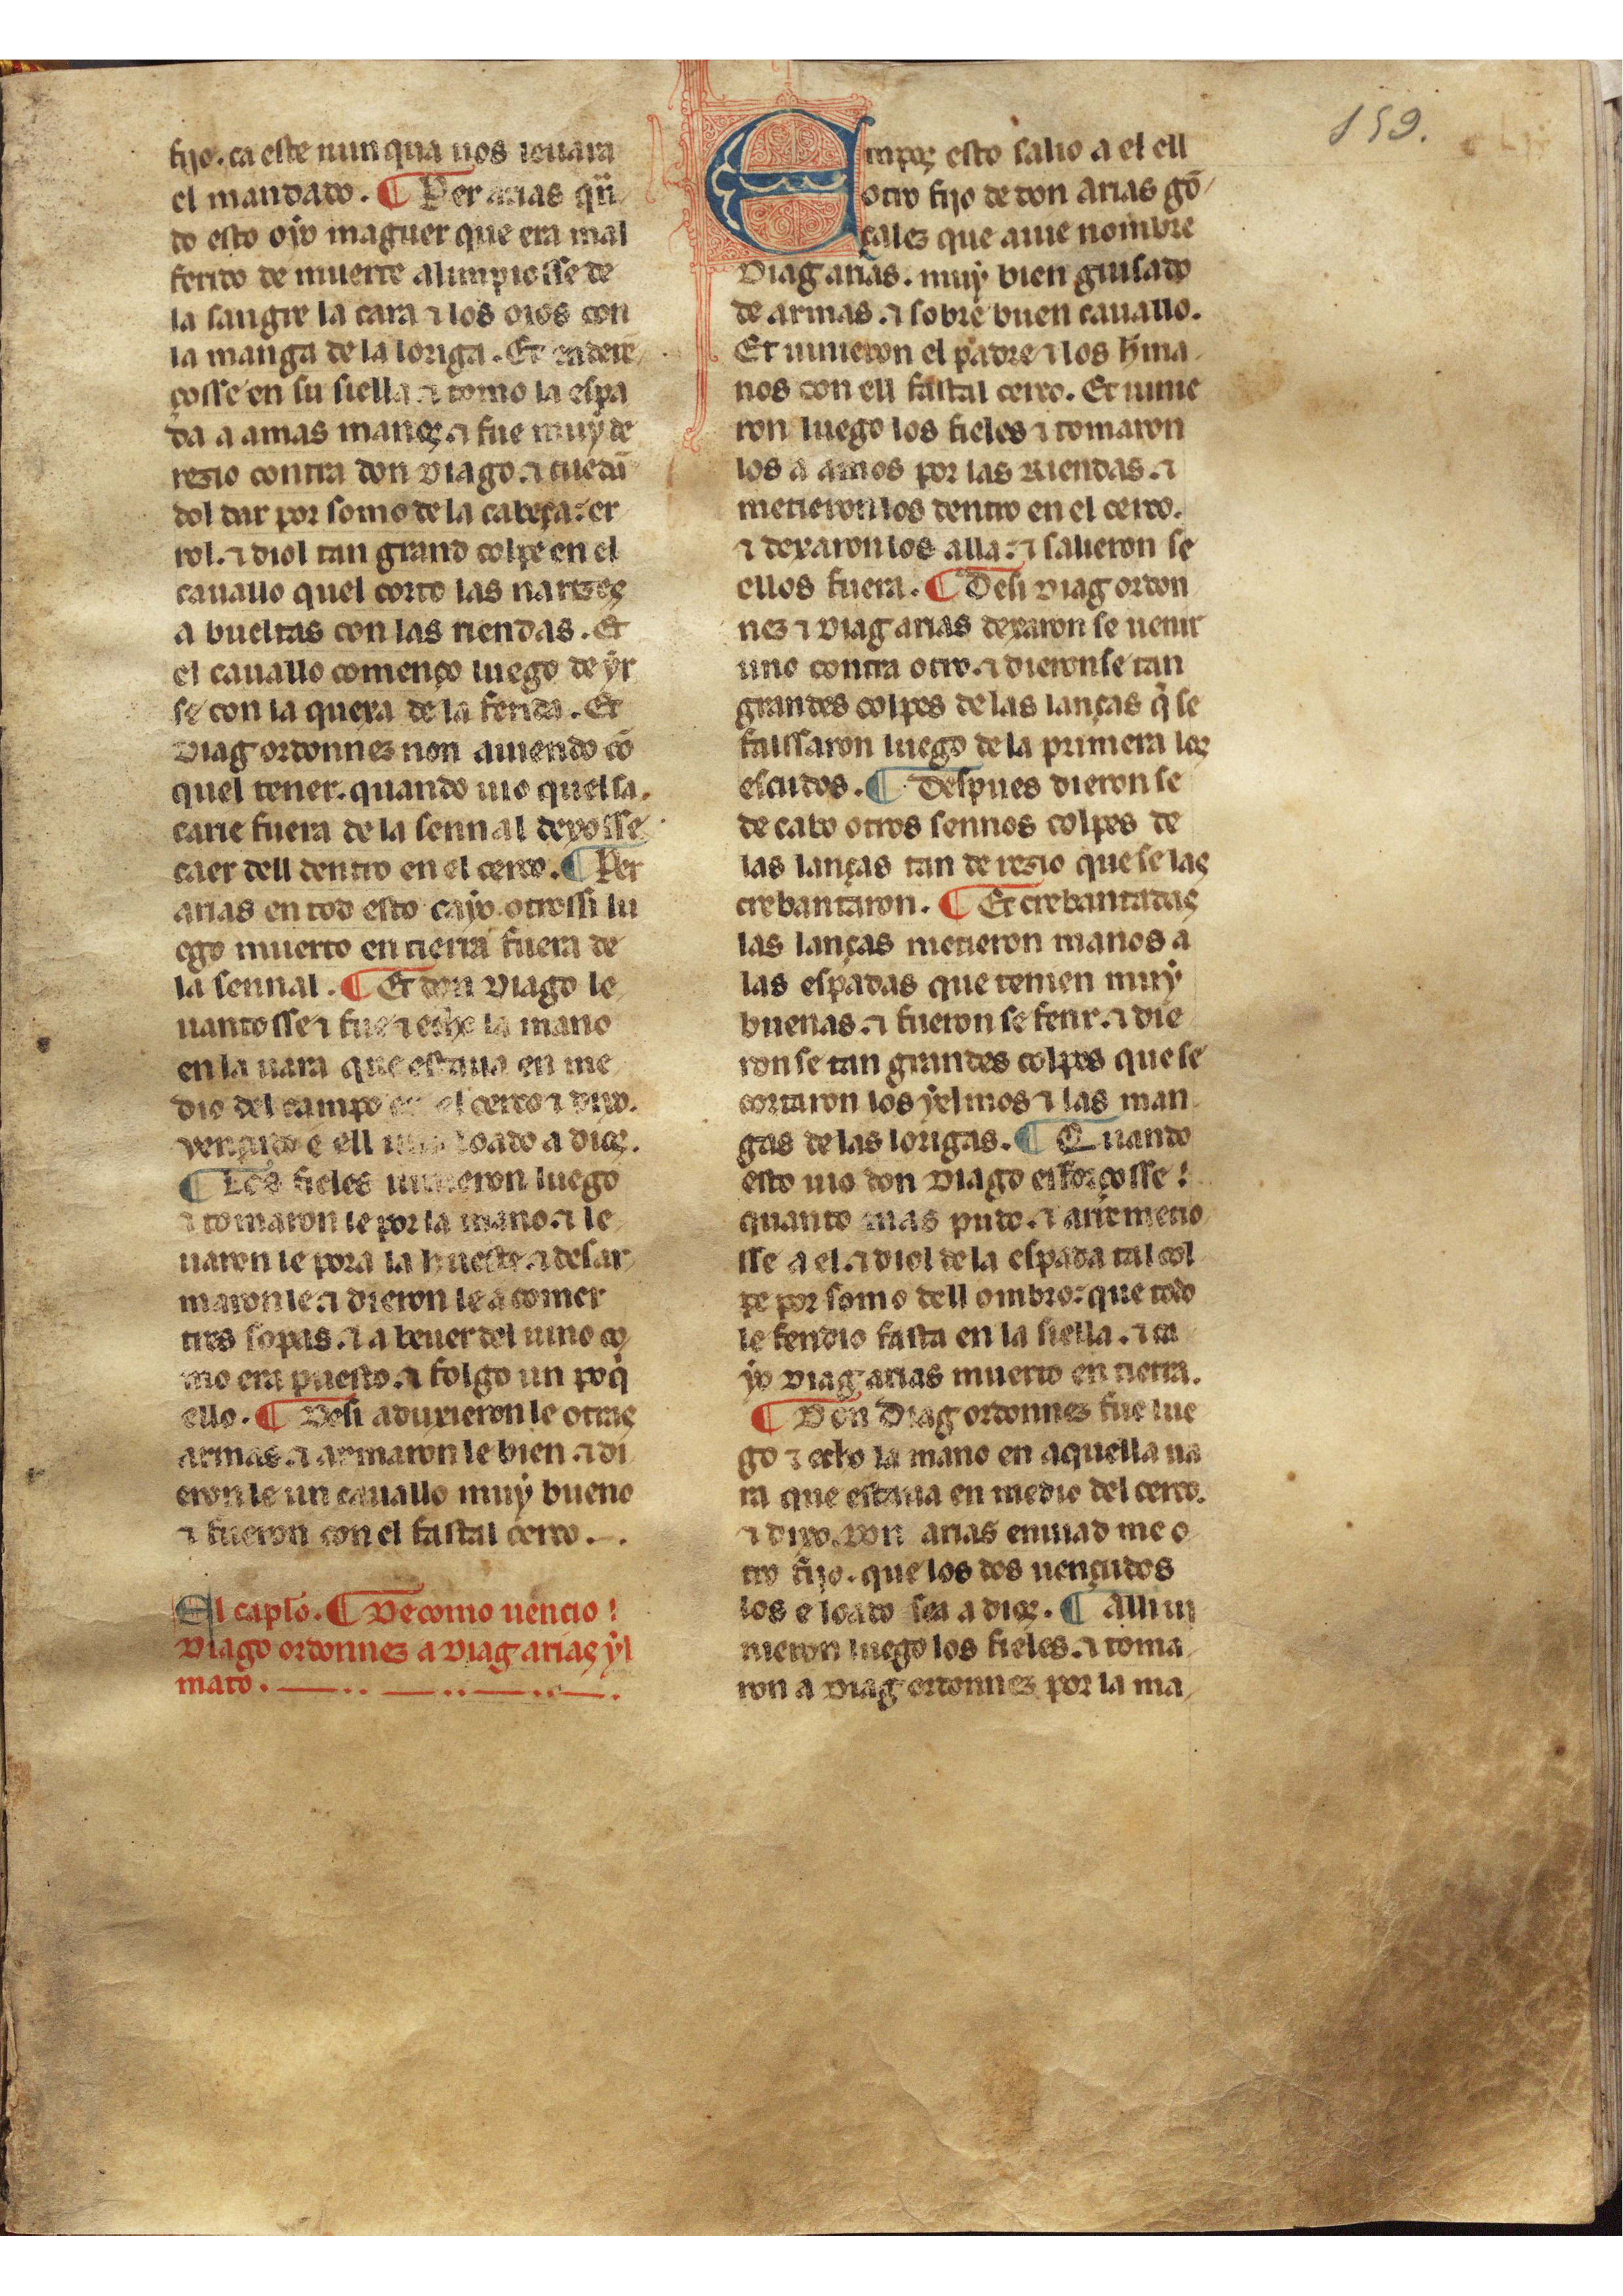 159.
fijo. ca este nunqua nos leuara
el mandado. ¶ Per arias qũ
do esto oẏo maguer que era mal
ferido de muerte alimpiosse de
la sangre la cara ⁊ los oios con
la manga de la loriga. Et endere
çosse en su siella ⁊ tomo la espa
da a amas manos ⁊ fue muẏ de
rezio contra don Diago. ⁊ cuedã
dol dar por somo de la cabeça: er
rol. ⁊ diol tan grand colpe en el
cauallo quel corto las narizes
a bueltas con las riendas. Et
el cauallo començo luego de ẏr
se con la quexa de la ferida. Et
Diag ordonnez non auiendo cõ
quel tener. quando uio quel sa
carie fuera de la sennal dexosse
caer dell dentro en el cerco. ¶ Per
arias en tod esto caẏo otrossi lu
ego muerto en tierra fuera de
la sennal. ¶ Et don Diago le
uantosse ⁊ fue ⁊ echo la mano
en la uara que estaua en me
dio del campo en el cerco ⁊ dixo.
uençudo e ell uno loado a dios.
¶ Los fieles uinieron luego
⁊ tomaron le por la mano. ⁊ le
uaron le pora la hueste. ⁊ desar
maron le. ⁊ dieron le a comer
tres sopas. ⁊ a beuer del uino co
mo era puesto. ⁊ folgo un poq̃
ello. ¶ Desi aduxieron le otras
armas. ⁊ armaron le bien. ⁊ di
eron le un cauallo muẏ bueno
⁊ fueron con el fastal cerco.
El capło. ¶ De como uencio
Diago ordonnez a Diag arias ẏl
mato.
Empos esto salio a el ell
otro fijo de don Arias gõ
çalez que auie nombre
Diag arias. muẏ bien guisado
de armas. ⁊ sobre buen cauallo.
Et uinieron el padre ⁊ los h̃ma
nos con ell fastal cerco. Et uinie
ron luego los fieles ⁊ tomaron
los a amos por las Riendas. ⁊
metieron los dentro en el cerco.
⁊ dexaron los alla: ⁊ salieron se
ellos fuera. ¶ Desi Diag ordon
nez ⁊ Diag arias dexaron se uenir
uno contra otro. ⁊ dieron se tan
grandes colpes de las lanças q̃ se
falssaron luego de la primera los
escudos. ¶ Despues dieron se
de cabo otros sennos colpes de
las lanças tan de rezio que se las
crebantaron. ¶ Et crebantadas
las lanças metieron manos a
las espadas que tenien muẏ
buenas. ⁊ fueron se ferir. ⁊ die
ron se tan grandes colpes que se
cortaron los ẏelmos ⁊ las man
gas de las lorigas. ¶ Quando
esto uio don Diago esforçosse
quanto mas pudo. ⁊ arremetio
sse a el. ⁊ diol de la espada tal col
pe por somo dell ombro: que todo
le fendio fasta en la siella. ⁊ ca
ẏo Diag arias muerto en tierra.
¶ Don Diag ordonnez fue lue
go ⁊ echo la mano en aquella ua
ra que estaua en medio del cerco.
⁊ dixo. don arias enuiad me o
tro fijo. que los dos uençudos
los e loado sea a dios. ¶ Alli ui
nieron luego los fieles. ⁊ toma
ron a Diag ordonnez por la ma